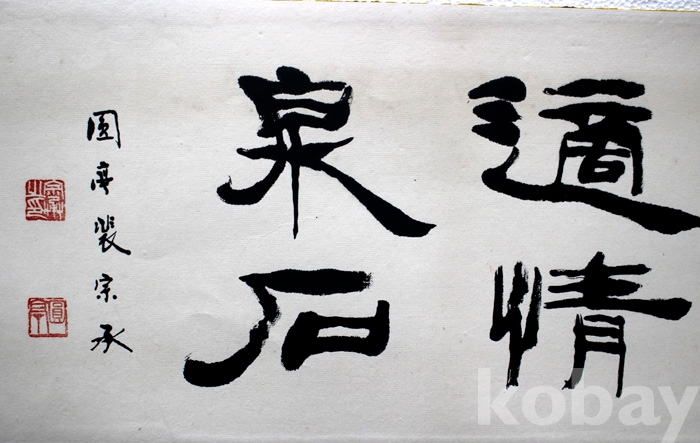 適情
泉石
圓亭裴宗承
kobay